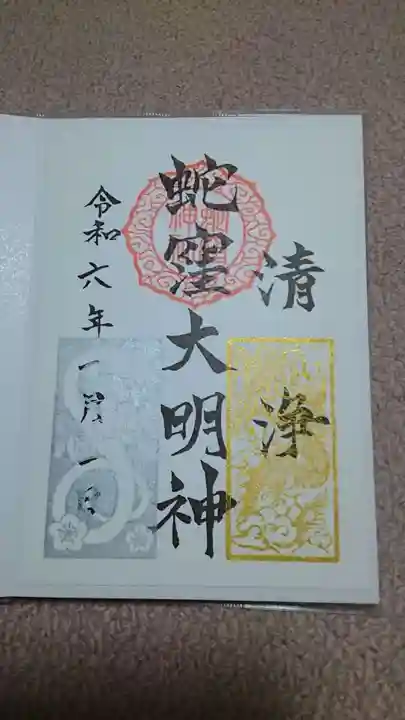 清浄
蛇窪大明神
令和六年一月一日